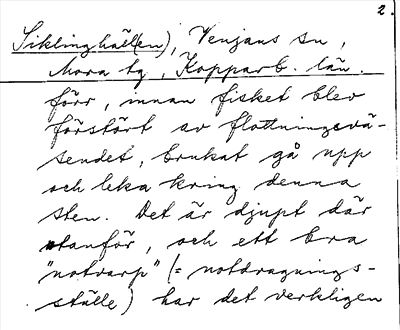 2.
Siklinghäll(en), Venjans sn,
Mora tg, Kopparb. län.
förr, innan fisket blev
förstört av flottningsvä-
sendet, brukat gå upp
och leka kring denna
sten. Det är djupt där
utanför, och ett bra
"notvarp" (= notdragnings-
ställe) har det verkligen